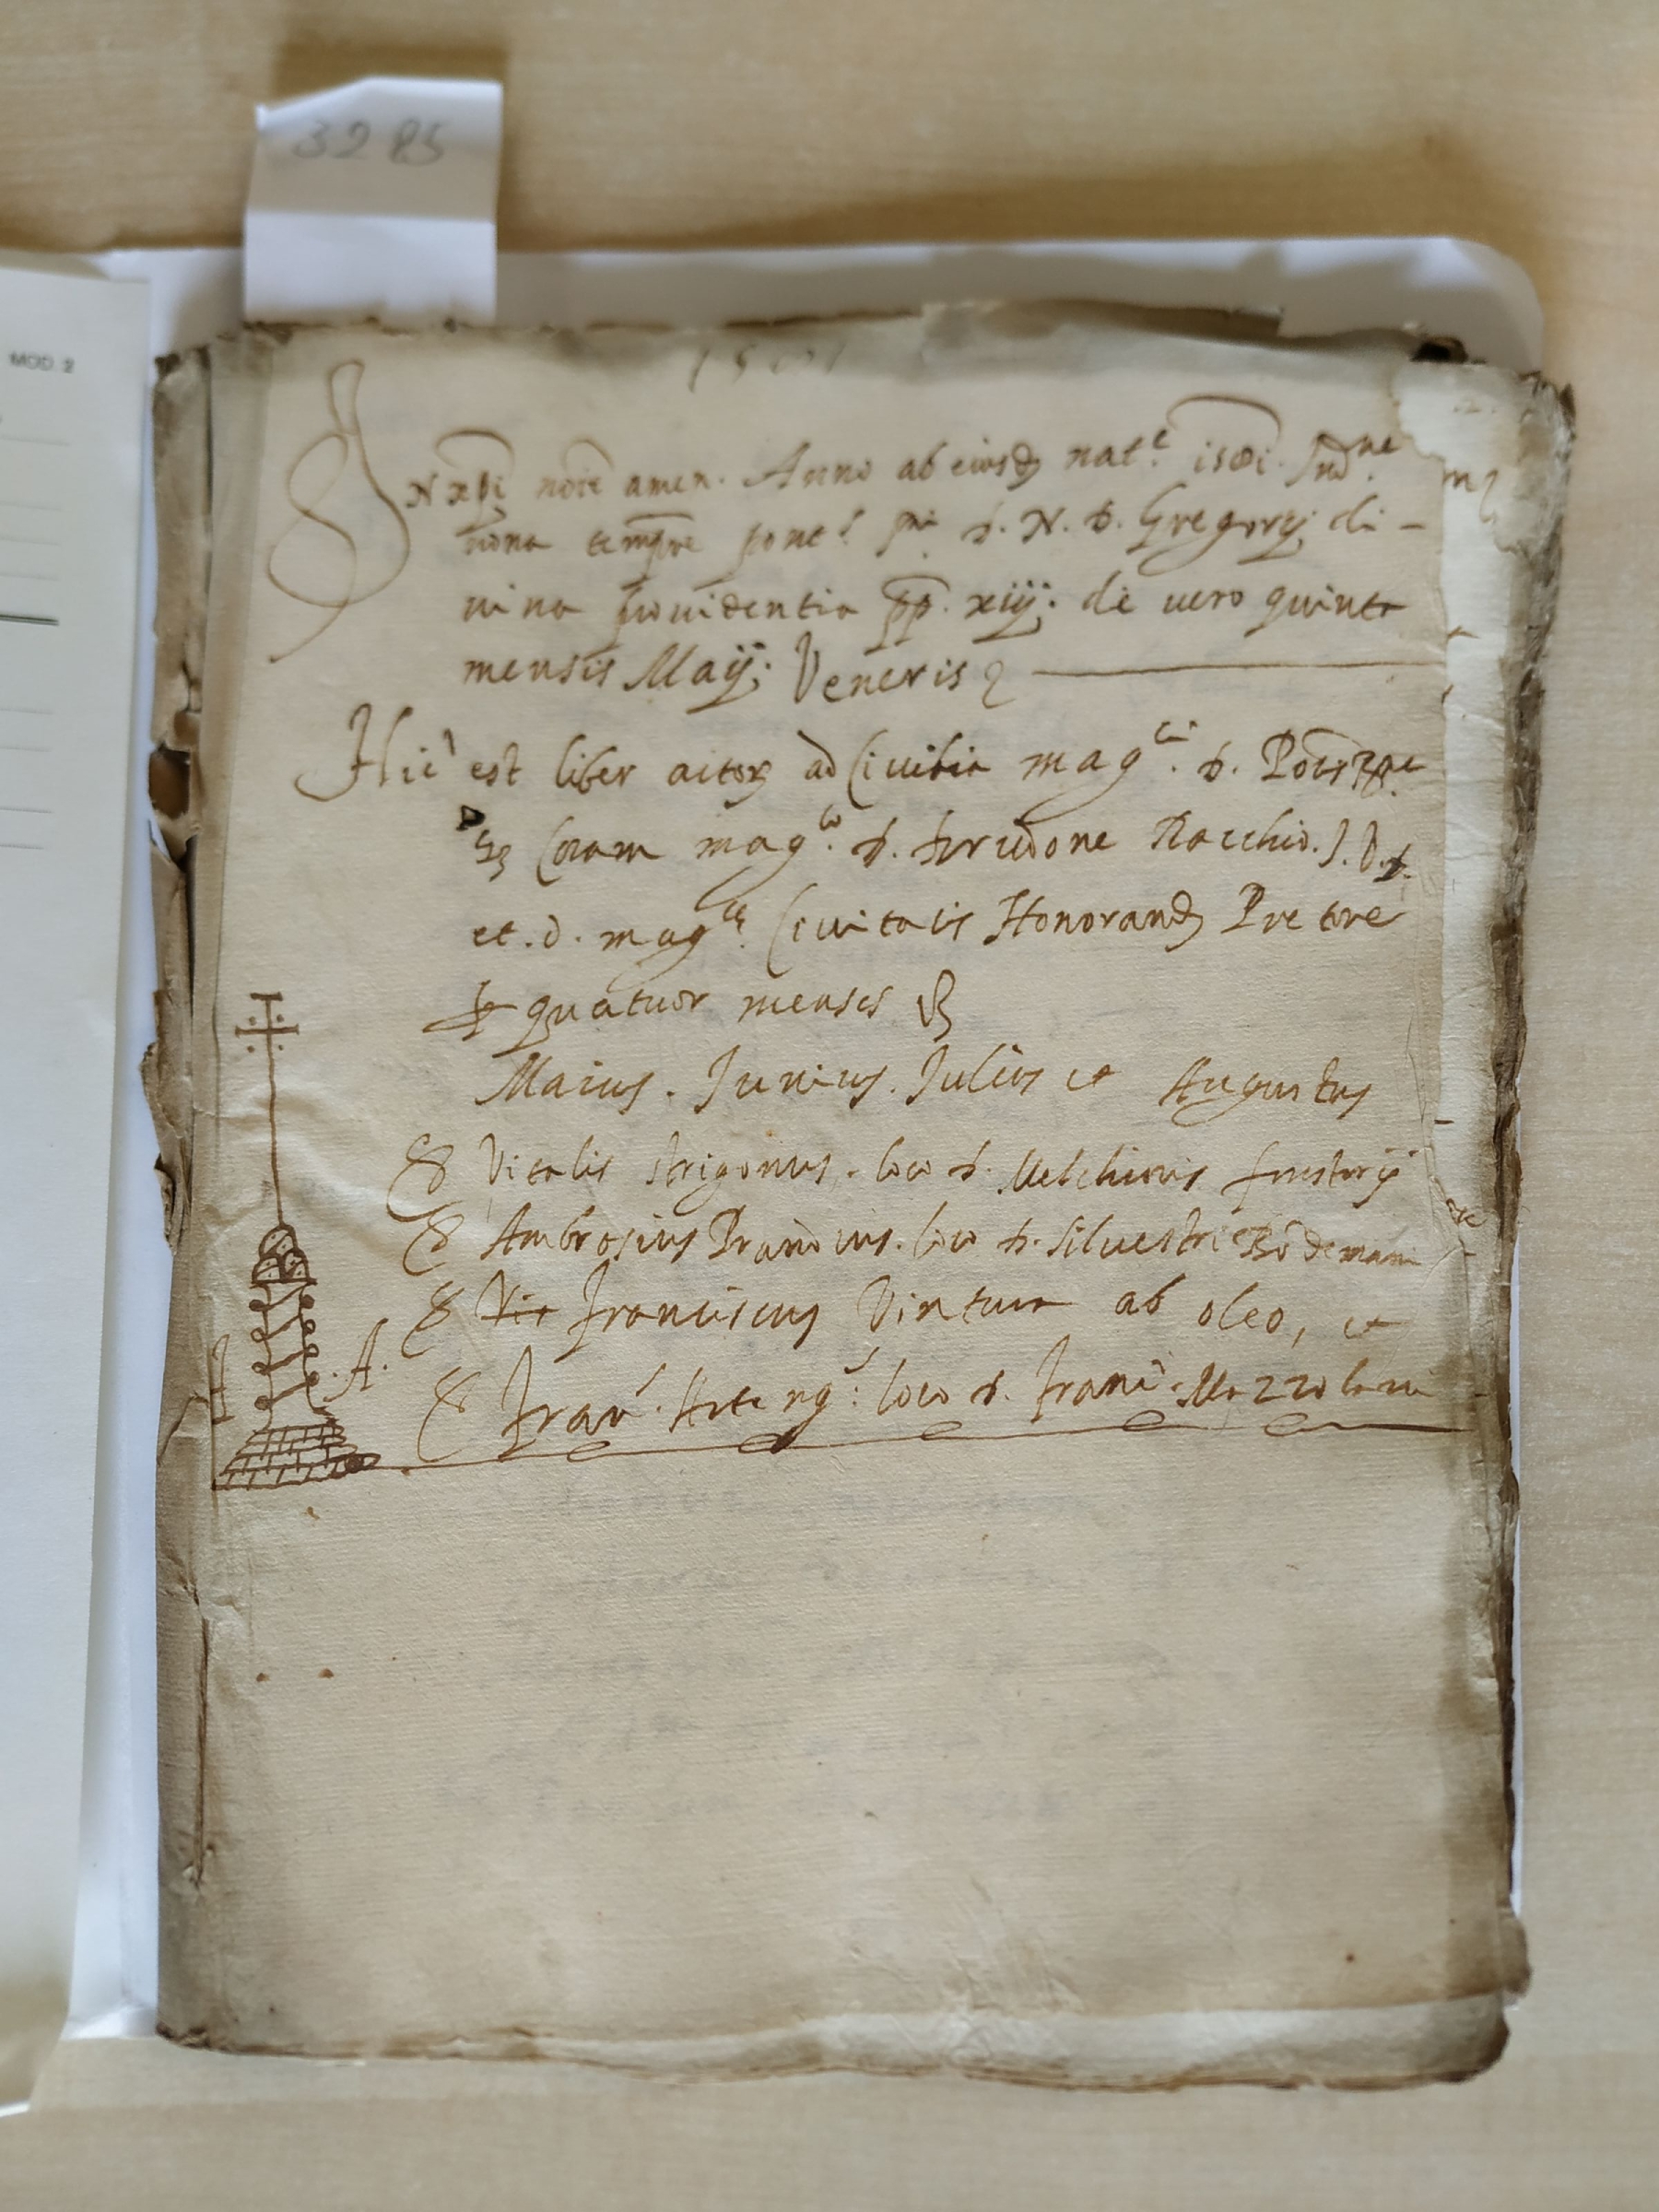 3285
MOD. 2
1581
IN xpi noie amen. Anno ab eiusd nat.e 1581. Ind.ne
nona tempre pont.s S.mi D. N. D. Gregorij di-
uina prouidentia pp. xiij. die uero quinta
mensis Maij. Veneris
Hic est liber actor ad Ciuilia mag.ci D.
Coram mag.co D. Racchio. J. V. D.
et. d. mag.ce Ciuitatis Honorand Pretore
p quatuor menses
Maius. Junius. Julius et Augustus
S Vitalis Strigonus. loco D. Melchioris
S Ambrosius Prandius. loco D. Siluestri
S Vit Franciscus Vintura ab oleo, et
S Fran. loco D. Franc. Mazzolani
A.